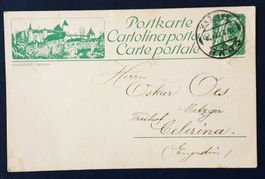 Postkarte
Cartolina postale
Carte postale
BURGDORF
Herrn
Oskar Oes
Metzger
Freihof
Celerina
(Engadin)